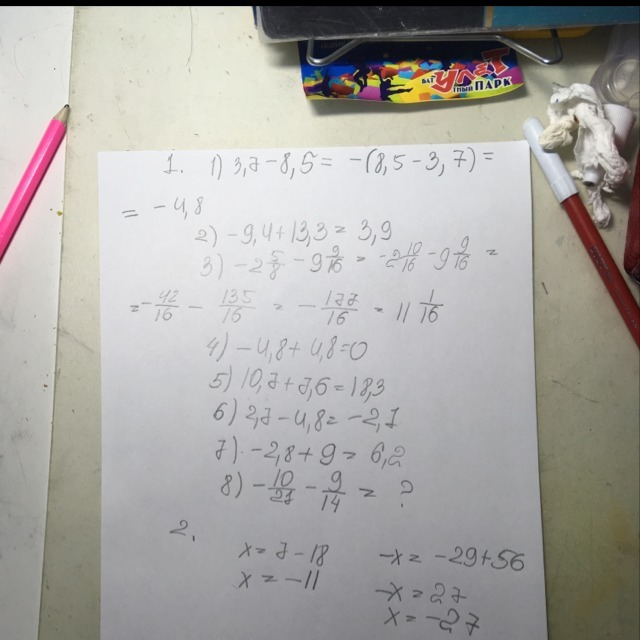 БАТ УЛЕТ
ТНЫЙ ПАРК
1. 1) 3,7-8,5= -(8,5-3,7)=
= -4,8
2) -9,4+13,3=3,9
3) -2 5/8 - 9 9/16 = -2 10/16 - 9 9/16 =
= -42/16 - 135/16 = -177/16 = 11 1/16
4) -4,8+4,8=0
5) 10,7+7,6=18,3
6) 2,7-4,8= -2,1
7) -2,8+9=6,2
8) -10/27 - 9/14 = ?
2.
x=7-18 -x= -29+56
x= -11 -x=27
x= -27